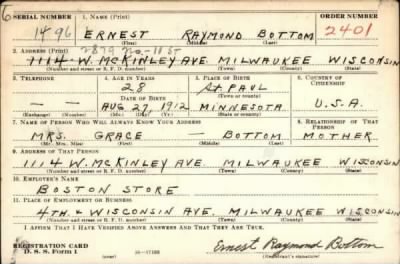 SERIAL NUMBER 1. NAME (Print) ORDER NUMBER
1496 ERNEST RAYMOND BOTTOM 2401
(First) (Middle) (Last)
2. ADDRESS (Print) 2879 No-11 St
1114 W. McKINLEY AVE. MILWAUKEE WISCONSIN
(Number and street or R. F. D. number) (Town) (County) (State)
3. TELEPHONE 4. AGE IN YEARS 5. PLACE OF BIRTH 6. COUNTRY OF CITIZENSHIP
28 St. PAUL
DATE OF BIRTH (Town or county)
— — AUG 27, 1912 MINNESOTA U.S.A.
(Exchange) (Number) (Mo.) (Day) (Yr.) (State or country)
7. NAME OF PERSON WHO WILL ALWAYS KNOW YOUR ADDRESS 8. RELATIONSHIP OF THAT PERSON
MRS. GRACE — BOTTOM MOTHER
(Mr., Mrs., Miss) (First) (Middle) (Last)
9. ADDRESS OF THAT PERSON
1114 W. McKINLEY AVE. MILWAUKEE WISCONSIN
(Number and street or R. F. D. number) (Town) (County) (State)
10. EMPLOYER'S NAME
BOSTON STORE
11. PLACE OF EMPLOYMENT OR BUSINESS
4TH. & WISCONSIN AVE. MILWAUKEE WISCONSIN
(Number and street or R. F. D. number) (Town) (County) (State)
I AFFIRM THAT I HAVE VERIFIED ABOVE ANSWERS AND THAT THEY ARE TRUE.
REGISTRATION CARD
D. S. S. Form 1 (over) Ernest Raymond Bottom